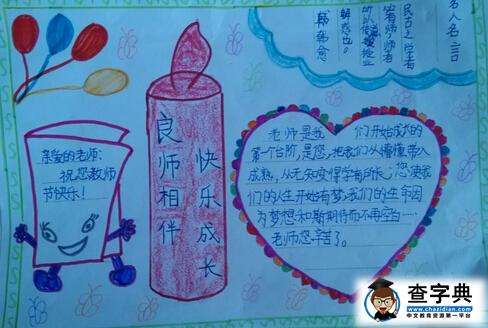 名人名言
古之学者
师者
解惑也。
亲爱的老师:
祝您教师
节快乐!
良师相伴
快乐成长
老师是我 们开始成功的
第一个台阶,是您,把我们从懵懂带入
成熟,从无知变得学有所长;您使我
们的人生开始有梦,我们的生命因
为梦想和斯期待而不再空白……
老师您辛苦了。
查字典
中文教育资源第一平台 (www.chazidian.com)